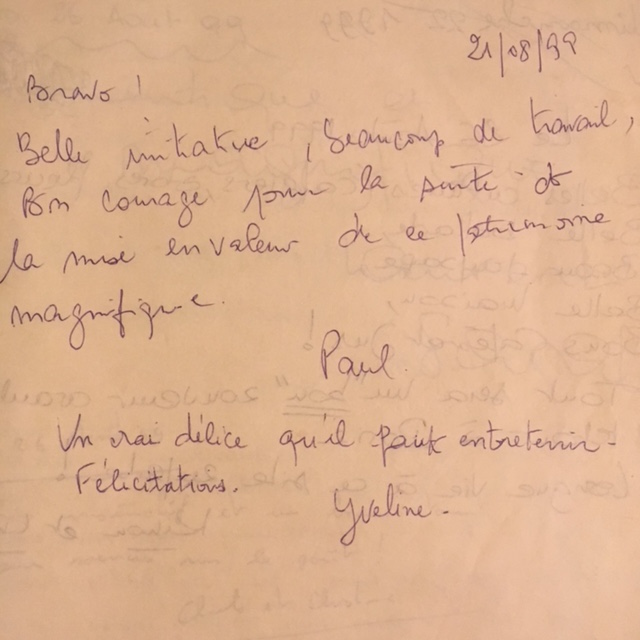 21/08/99
Bravo !
Belle initiative, beaucoup de travail,
Bon courage pour la suite et
la mise en valeur de ce patrimoine
magnifique.
Paul.
Un vrai délice qu'il faut entretenir.
Félicitations.
Yveline.